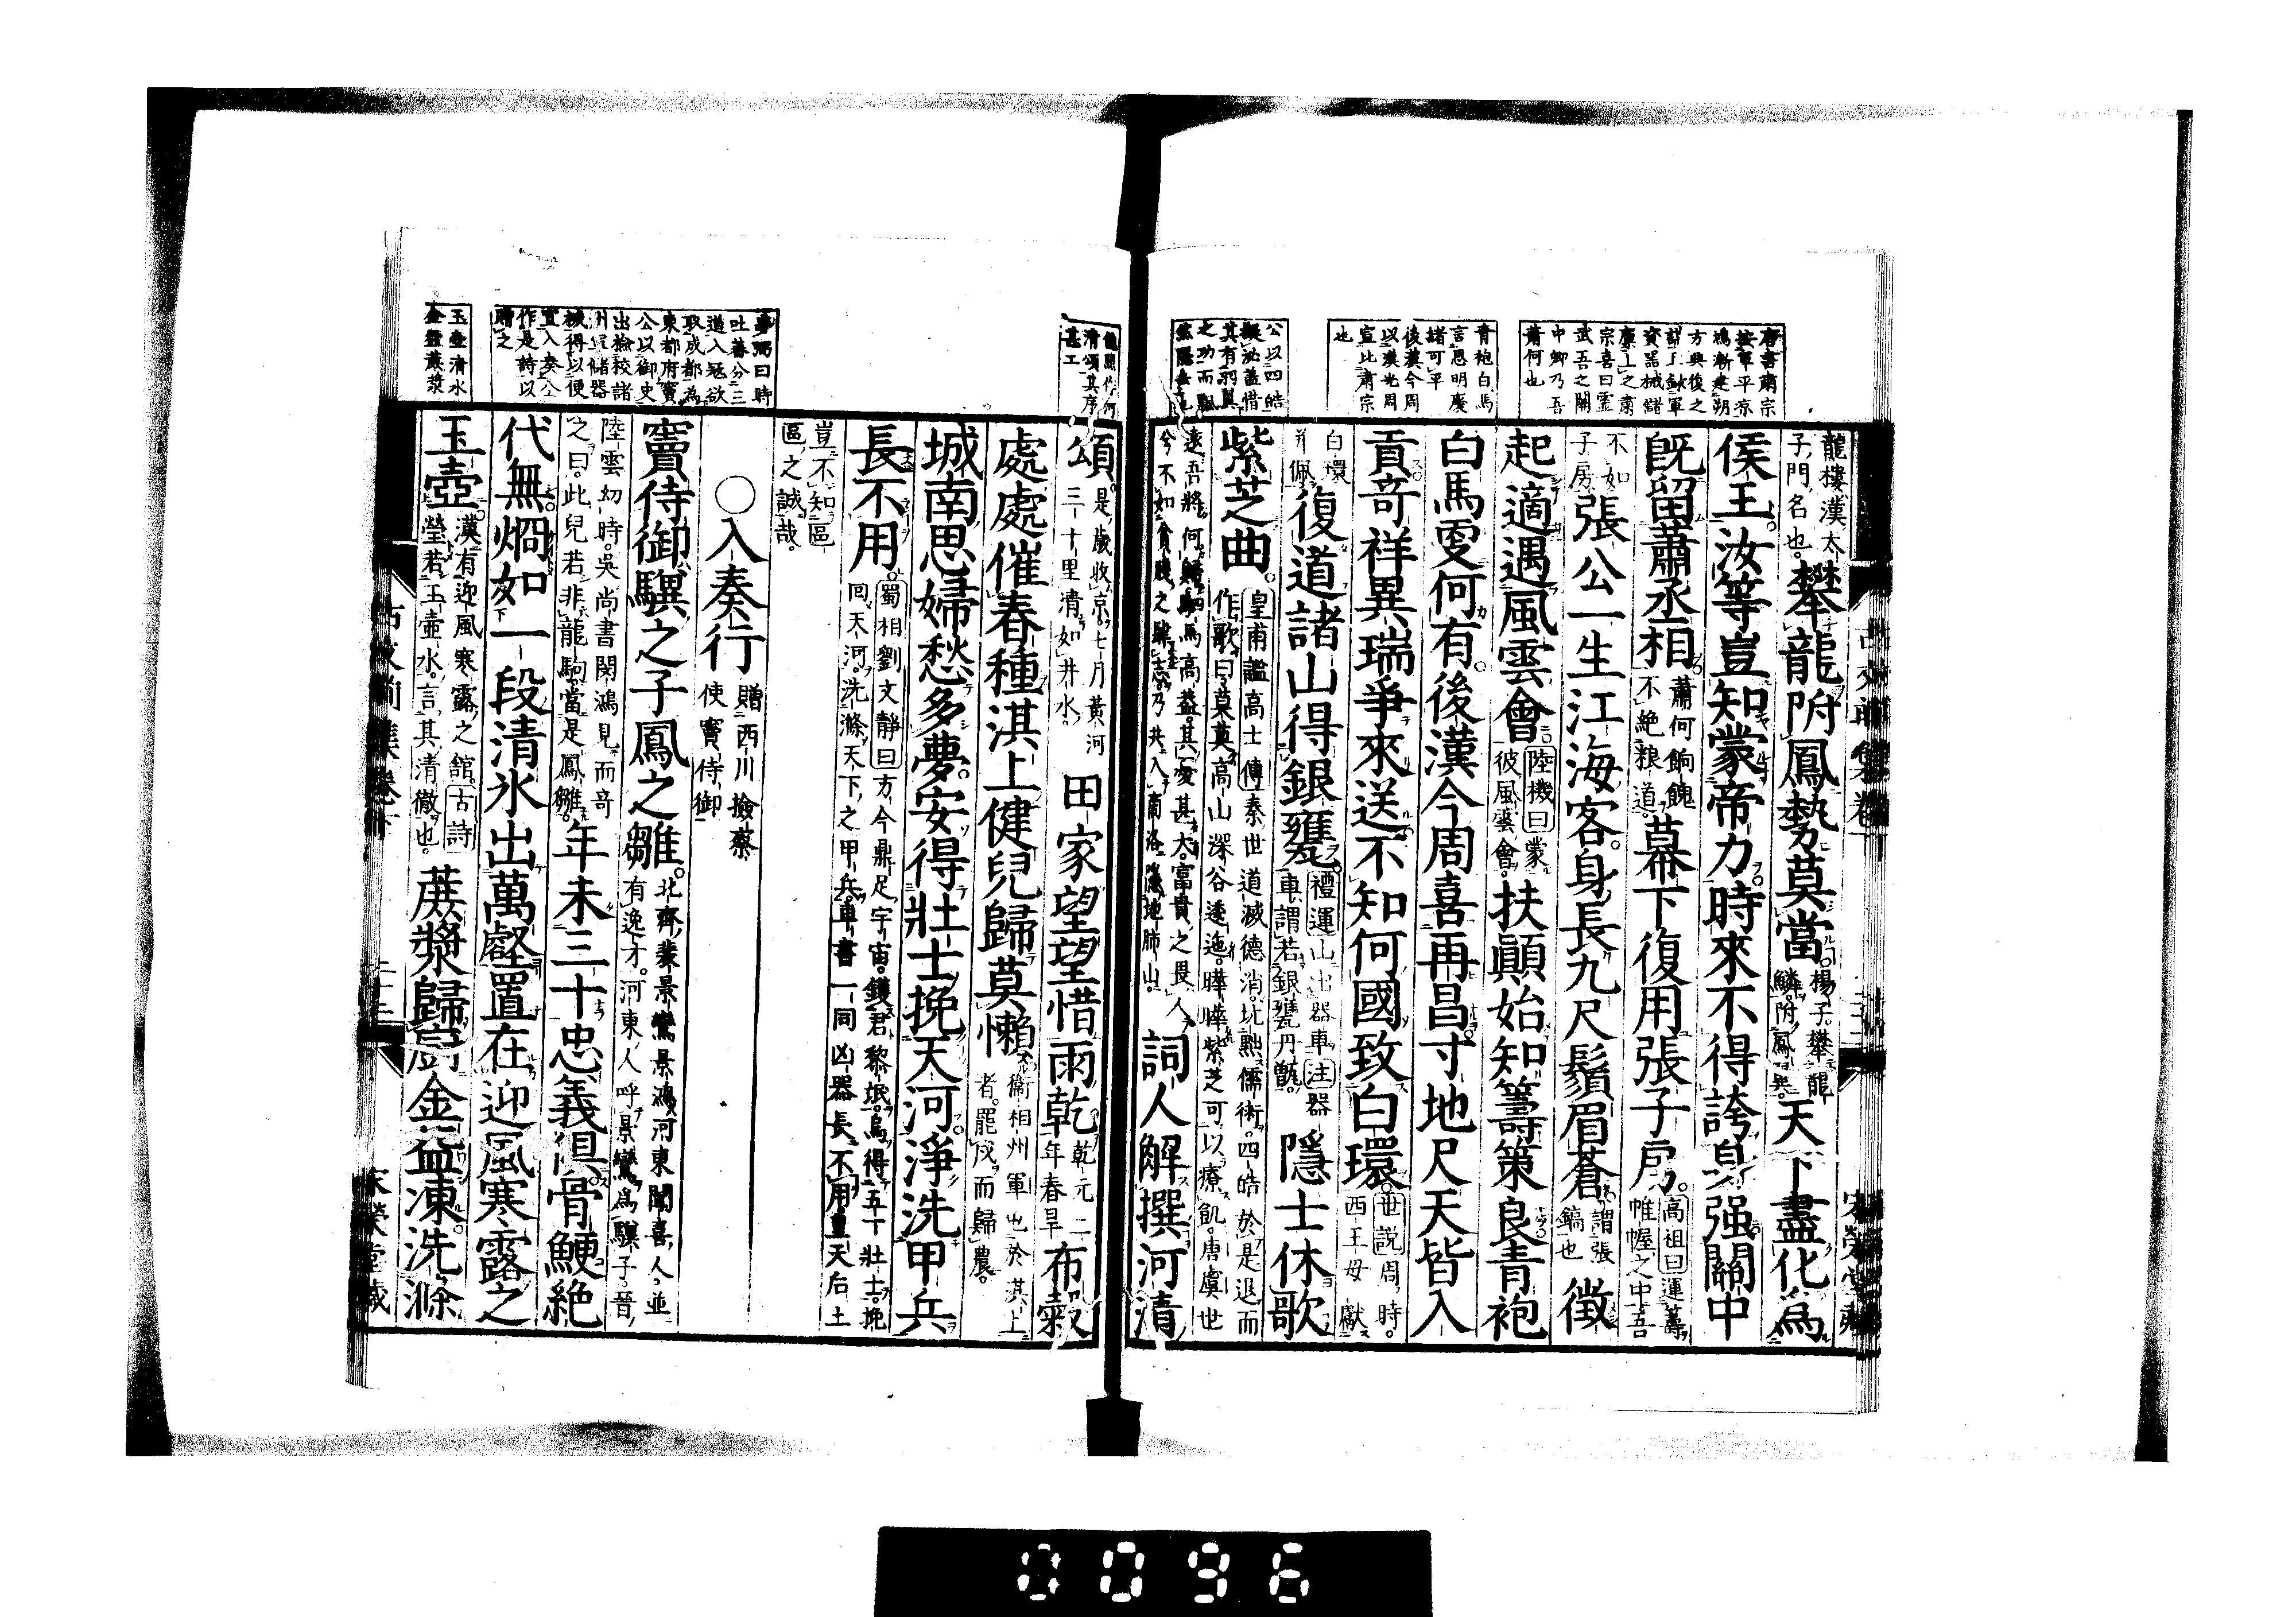 唐書肅宗
按軍平凉
方興復之
資器械儲
廩上之肅
宗喜曰靈
武吾之關
中卿乃吾
蕭何也
青袍白馬
言思明慶
諸可平
後漢今周
以漢光周
宣比肅宗
也
公以四皓
擬泌蓋惜
其有羽翼
之功而飄
然隱去也
龍樓漢太
子門名也。攀龍附鳳勢莫當。楊子攀龍
鱗附鳳翼。天下盡化為
侯王。汝等豈知蒙帝力。時來不得誇身强。關中
既留蕭丞相。蕭何餉餽
不絕粮道。幕下復用張子房。高祖曰運籌
帷幄之中吾
不如
子房張公一生江海客。身長九尺鬚眉蒼。謂張
鎬也徵
起適遇風雲會。陸機曰蒙
彼風雲會。扶顚始知籌策良。青袍
白馬更何有。後漢今周喜再昌。寸地尺天皆入
貢。奇祥異瑞爭來送。不知何國致白環。世説周時。
西王母獻
白環
并佩復道諸山得銀甕。禮運山出器車注器
車謂若銀甕丹甑。隱士休歌
紫芝曲。皇甫謐高士傳秦世道滅德消。坑黜儒術。四皓於是退而
作歌曰。莫莫高山深谷逶迤。曄曄紫芝可以療飢。唐虞世
遠吾將何歸。駟馬高蓋其憂甚大。富貴之畏人
兮不如貧賤之肆志。乃共入商洛隱地肺山。詞人解撰河清
清頌其序
甚工
頌。是歲收京。七月黃河
三十里清如井水。田家望望惜雨乾。乾元二
年春旱布穀
處處催春種。淇上健兒歸莫懶。衞相州軍也於淇上
者。罷戍而歸農。
城南思婦愁多夢。安得壯士挽天河。淨洗甲兵
長不用。蜀相劉文靜曰方今鼎足宇宙。鑊君黎氓。烏得五丁壯士。挽
囘天河。洗滌天下之甲兵。車書一同凶器長不用。皇天后土
豈不知區
區之誠哉。
○入奏行贈西川檢察
使竇侍御
夢弼曰時
吐蕃分三
道入寇欲
取成都為
東都府竇
公以御史
出檢校諸
州軍儲器
械得以便
宜入奏公
作是詩以
贈之
竇侍御驥之子鳳之雛。北齊裴景鸞景鴻河東聞喜人。並
有逸才。河東人呼景鸞爲驥子。晉
陸雲幼時。吳尚書閔鴻見而奇
之曰。此兒若非龍駒。當是鳳雛。年未三十忠義俱。骨鯁絕
代無。烱如一段清氷出萬壑。置在迎風寒露之
玉壺清水
金盌蔗漿
玉壺。漢有迎風寒露之館。古詩
瑩若玉壺水。言其清徹也。蔗漿歸廚金盌凍。洗滌